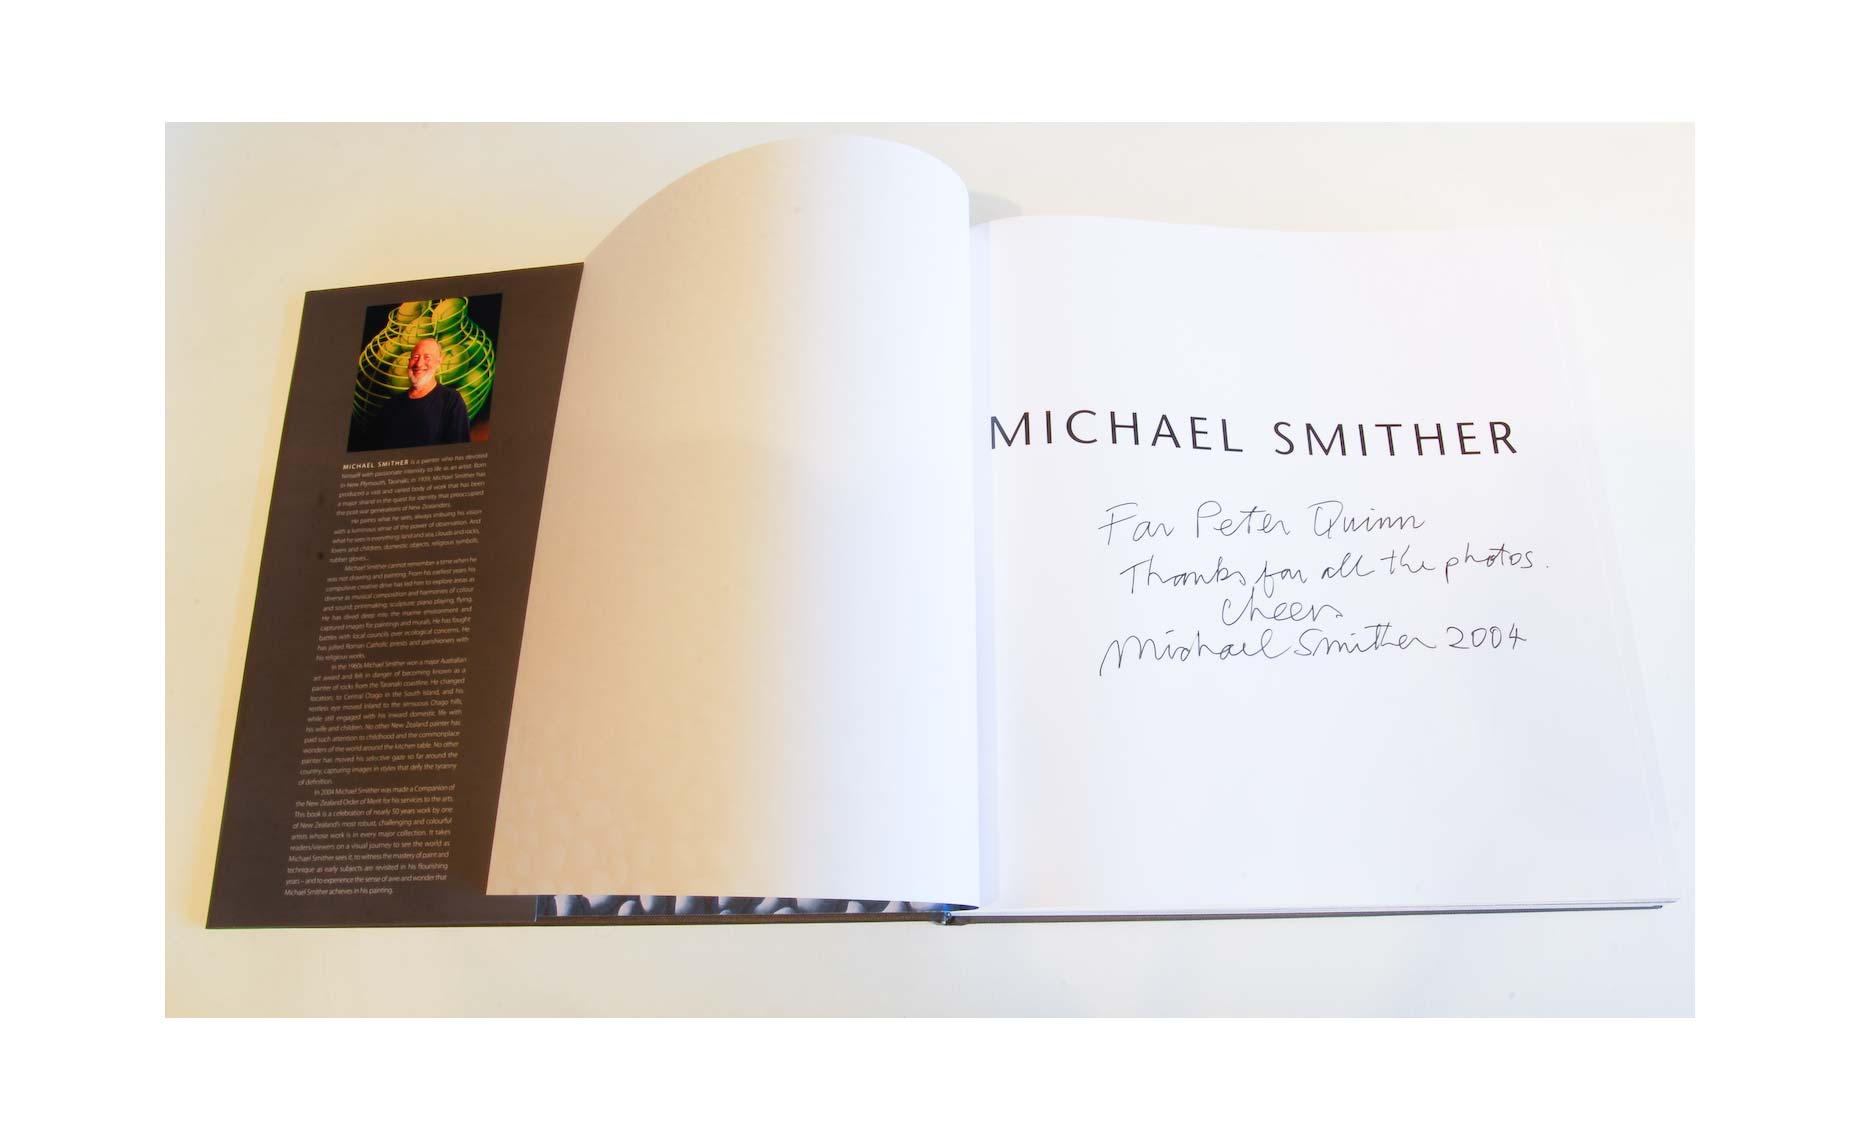 MICHAEL SMITHER is a painter who has devoted
himself with passionate intensity to life as an artist. Born
in New Plymouth, Taranaki, in 1939, Michael Smither has
produced a vast and varied body of work that has been
a major strand in the quest for identity that preoccupied
the post-war generations of New Zealanders.
He paints what he sees, always imbuing his vision
with a luminous sense of the power of observation. And
what he sees is everything: land and sea, clouds and rocks,
lovers and children, domestic objects, religious symbols,
rubber gloves...
Michael Smither cannot remember a time when he
was not drawing and painting. From his earliest years his
compulsive creative drive has led him to explore areas as
diverse as musical composition and harmonies of colour
and sound; printmaking; sculpture; piano playing, flying.
He has dived deep into the marine environment and
captured images for paintings and murals. He has fought
battles with local councils over ecological concerns. He
has jolted Roman Catholic priests and parishioners with
his religious works.
In the 1960s Michael Smither won a major Australian
art award and felt in danger of becoming known as a
painter of rocks from the Taranaki coastline. He changed
location; to Central Otago in the South Island, and his
restless eye moved inland to the sensuous Otago hills,
while still engaged with his inward domestic life with
his wife and children. No other New Zealand painter has
paid such attention to childhood and the commonplace
wonders of the world around the kitchen table. No other
painter has moved his selective gaze so far around the
country, capturing images in styles that defy the tyranny
of definition.
In 2004 Michael Smither was made a Companion of
the New Zealand Order of Merit for his services to the arts.
This book is a celebration of nearly 50 years work by one
of New Zealand's most robust, challenging and colourful
artists whose work is in every major collection. It takes
readers/viewers on a visual journey to see the world as
Michael Smither sees it, to witness the mastery of paint and
technique as early subjects are revisited in his flourishing
years – and to experience the sense of awe and wonder that
Michael Smither achieves in his painting.
MICHAEL SMITHER
For Peter Quinn
Thanks for all the photos.
Cheers
Michael Smither 2004